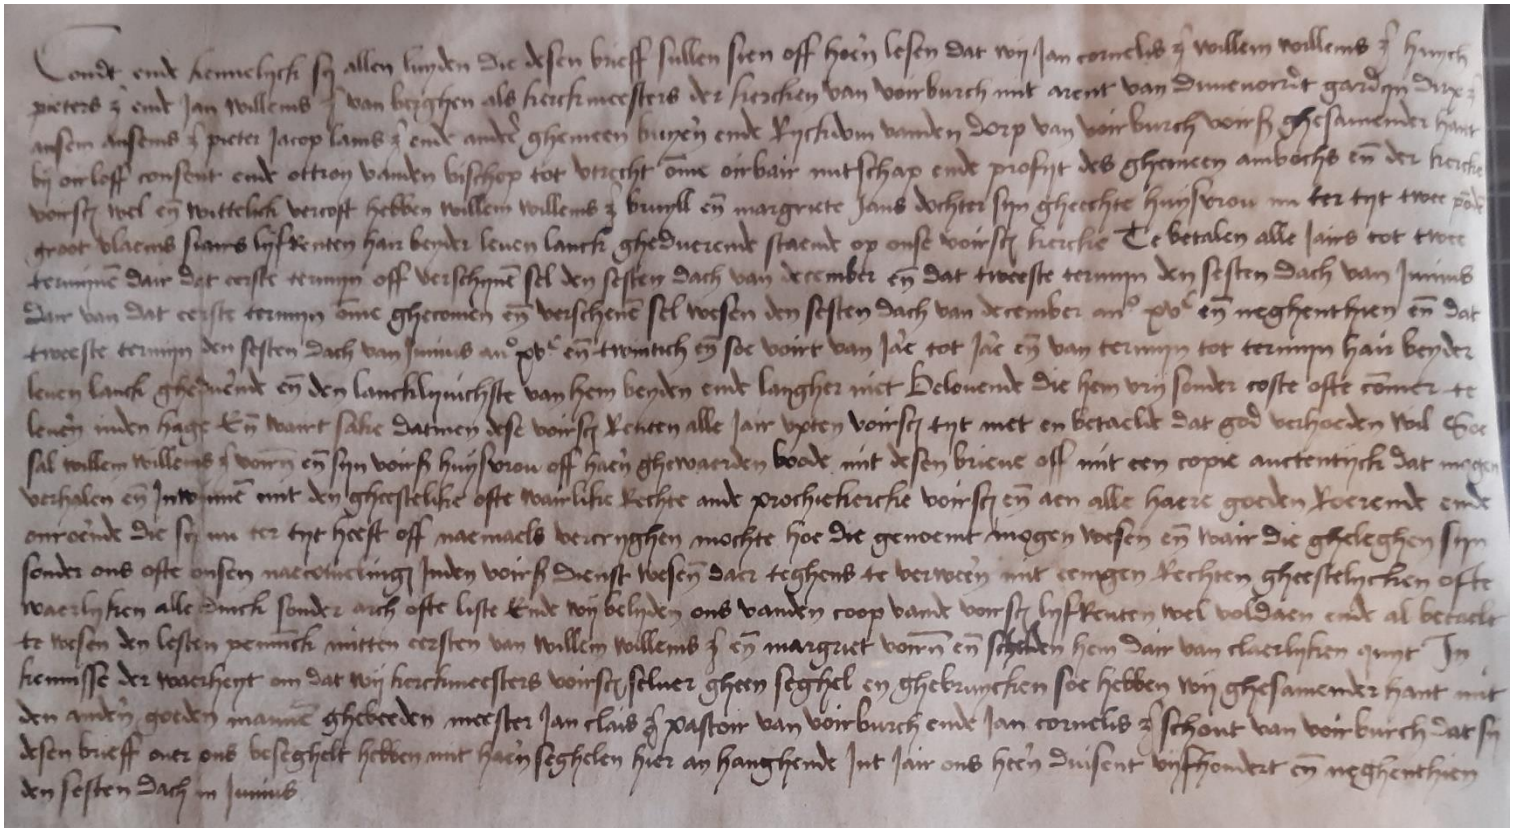 Condt ende kennelyck sy allen luyden die desen brieff sullen sien off hoen lesen dat wy Jan cornelis z willem willems z huych
pieters z ende Jan willems z van berghen als kerckmeesters der kercken van voirburch mit arent van duvenvordt gardyn dirx z
ansem ansems z pieter Jacop lams z ende ander ghemeen buyren ende Ryckdom vanden dorp van voirburch voirs ghesamender hant
bij oirloff consent ende ottroy vanden bisschop tot utrecht ome oirbair nutschap ende profijt des ghemeen ambochs en der kercke
voirs wel en wittelick vercoft hebben willem willems z bruyll en margriete Jans dochter syn gheechte huysvrou nu ter tyt twee ponde
groot vlaems siairs lyfRenten hair beyder leven lanck gheduerende staende op onse voirs kercke Te betalen alle Jairs tot twee
terminen dair dat eerste termyn off verschynen sel den sesten dach van december en dat tweeste termyn den sesten dach van Junius
dair van dat eerste termyn ome ghecomen en verschenen sel wesen den sesten dach van december an° xvc en neghenthien en dat
tweeste termyn den sesten dach van Junius an° xvc en twintich en soe voirt van Jare tot Jare en van termyn tot termyn hair beyder
leven lanck gheduende en den lancklyvichste van hem beyden ende langher niet Belovende die hem vrij sonder coste ofte comer te
leven inden hage En wairt sake datmen dese voirs Renten alle Jair upten voirs tyt niet en betaelde dat god verhoeden wil Soe
sal willem willems z voirn en syn voirs huysvrou off haen ghewaerden boode mit desen brieve off mit een copie auctentyck dat mogen
verhalen en Inwinnen mit den gheestelike ofte wairlike Rechte ande prochiekercke voirs en aen alle haere goeden Roerende ende
onroende die sy nu ter tyt heeft off naemaels vercryghen mochte hoe die genoemt mogen wesen en wair die gheleghen syn
sonder ons ofte onsen naecomeling Inden voirs dienst wesen daer teghens te verween mit eenigen Rechten gheestelycken ofte
waerlyken alle dinck sonder arch ofte liste Ende wy belyden ons vanden coop vande voirs lyfRenten wel voldaen ende al betaelt
te wesen den lesten pennick mitten eersten van willem willems z en margriet voirn en schelden hem dair van claerlyken quyt In
kennisse der waerheyt om dat wy kerckmeesters voirs selver gheen seghel en ghebruycken soe hebben wy ghesamender hant mit
den anden goeden mannen ghebeeden meester Jan clais z pastoir van voirburch ende Jan cornelis z schout van voirburch dat sy
desen brieff over ons beseghelt hebben mit haen seghelen hier an hanghende Int Jair ons heen duisent vyfhondert en neghenthien
den sesten dach in Junius